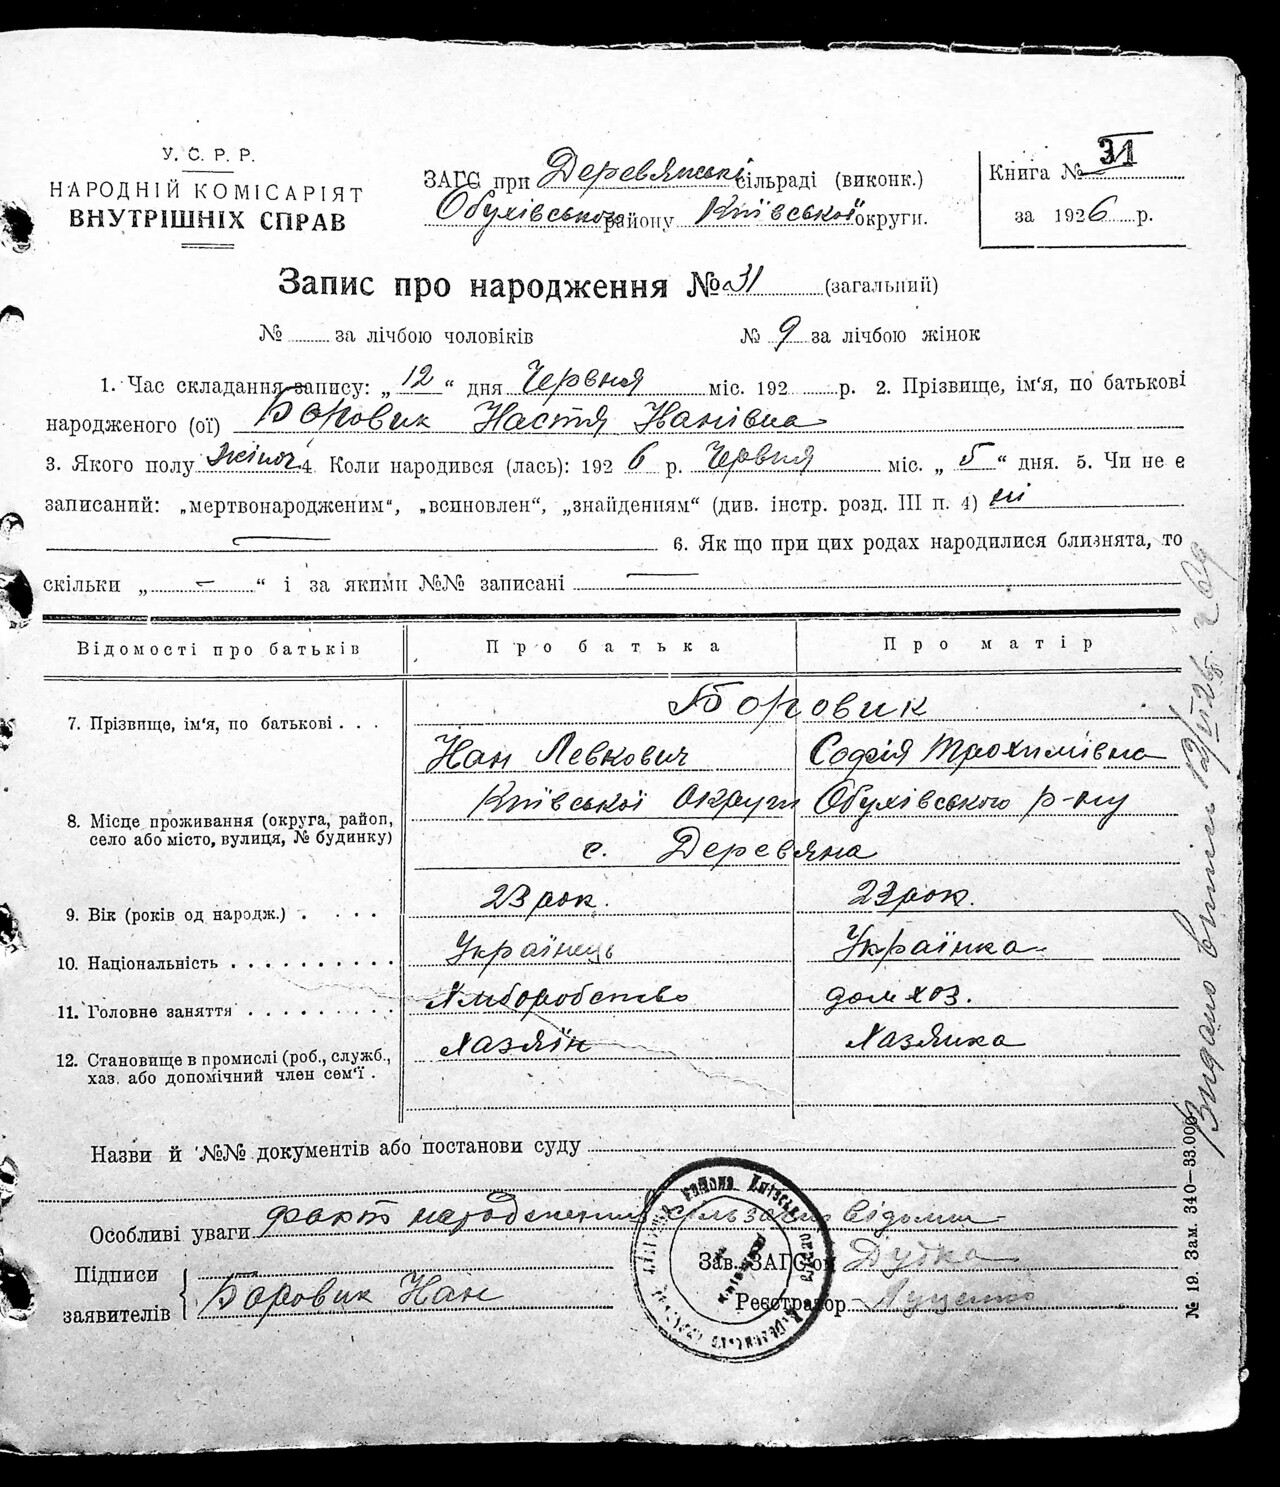 У. С. Р. Р.
НАРОДНІЙ КОМІСАРІЯТ
ВНУТРІШНІХ СПРАВ
ЗАГС при Деревянські сільраді (виконк.)
Обухівського району Київської округи.
Книга № 31
за 1926 р.
Запис про народження № 31 (загальний)
№ за лічбою чоловіків № 9 за лічбою жінок
1. Час складання запису: „12“ дня Червня міс. 192 р. 2. Прізвище, ім'я, по батькові
народженого (ої) Боровик Настя Іванівна
3. Якого полу жіноч 4. Коли народився (лась): 1926 р. Червня міс. „5“ дня. 5. Чи не є
записаний: „мертвонародженим“, „всиновлен“, „знайденням“ (див. інстр. розд. III п. 4) ні
6. Як що при цих родах народилися близнята, то
скільки „ – “ і за якими №№ записані —
Відомості про батьків Про батька Про матір
7. Прізвище, ім'я, по батькові . . . Боровик
Іван Левкович Софія Трохимівна
8. Місце проживання (округа, район, село або місто, вулиця, № будинку) Київської округи Обухівського р-ну
с. Деревяна
9. Вік (років од народж.) . . . . 23 рок. 23 рок.
10. Національність . . . . . . . . . . Українець Українка
11. Головне заняття . . . . . . . . . Хліборобство дом. хоз.
12. Становище в промислі (роб., служб., хаз. або допомічний член сем'ї . Хазяїн Хазяйка
Назви й №№ документів або постанови суду
Особливі уваги факт народження сільзагсо відомий
Підписи
заявителів Боровик Іван
Зав. ЗАГС'ом Дудка
Реєстратор Луценко
№ 19. Зам. 340—33.000
Видано витяг 12/VI 26 р. № 69